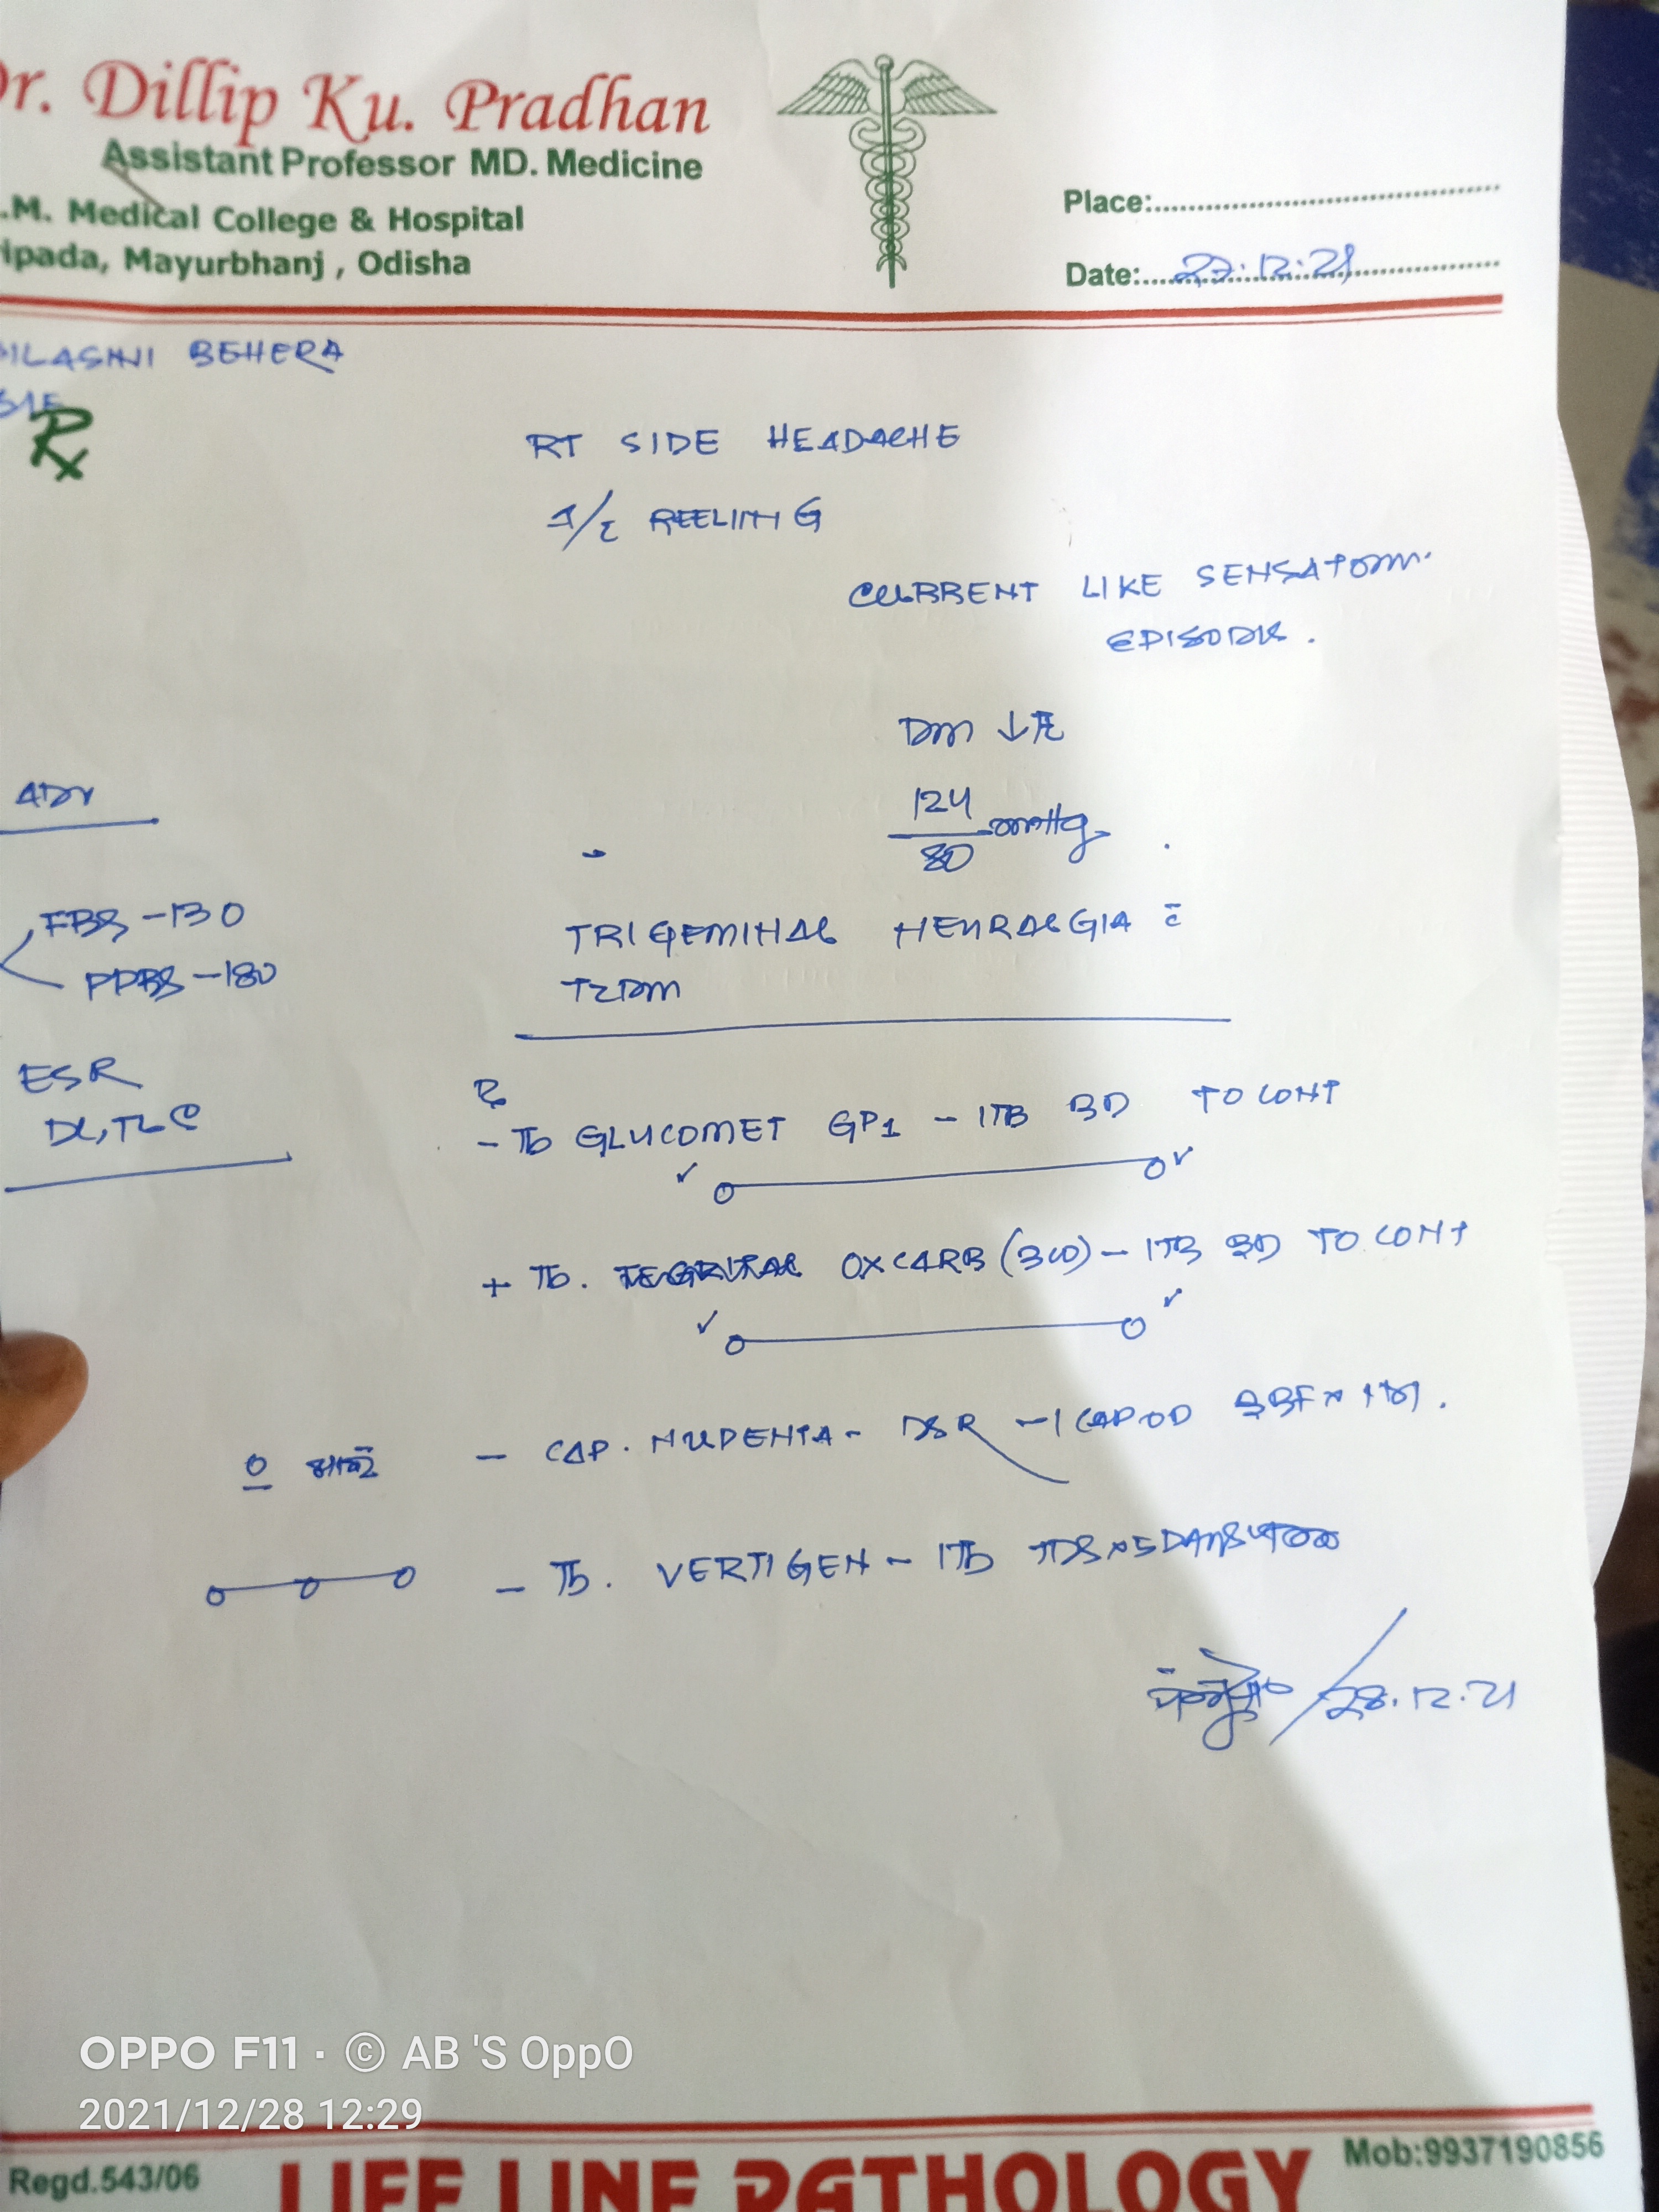 Dr. Dillip Ku. Pradhan
Assistant Professor MD. Medicine
.M. Medical College & Hospital
ripada, Mayurbhanj , Odisha
Place:
Date: 27.12.21
BEHERA
Rx
RT SIDE HEADACHE
REELING
CURRENT LIKE SENSATION
EPISODIC.
DM ↓
124
80 mmHg
ADV
FBS - 130
PPBS - 180
TRIGEMINAL NEURALGIA c̄
T2DM
ESR
DC, TLC
Rx
- Tb GLUCOMET GP1 - 1TB BD TO CONT
+ Tb. TEGRITAL OXCARB (300) - 1TB BD TO CONT
- CAP. NUPENTA - DSR - 1 CAP OD BBF x
- Tb. VERTIGEN - 1Tb TDS x 5 DAYS
28.12.21
OPPO F11 · © AB 'S OppO
2021/12/28 12:29
Regd.543/06
LIFE LINE PATHOLOGY
Mob:9937190856